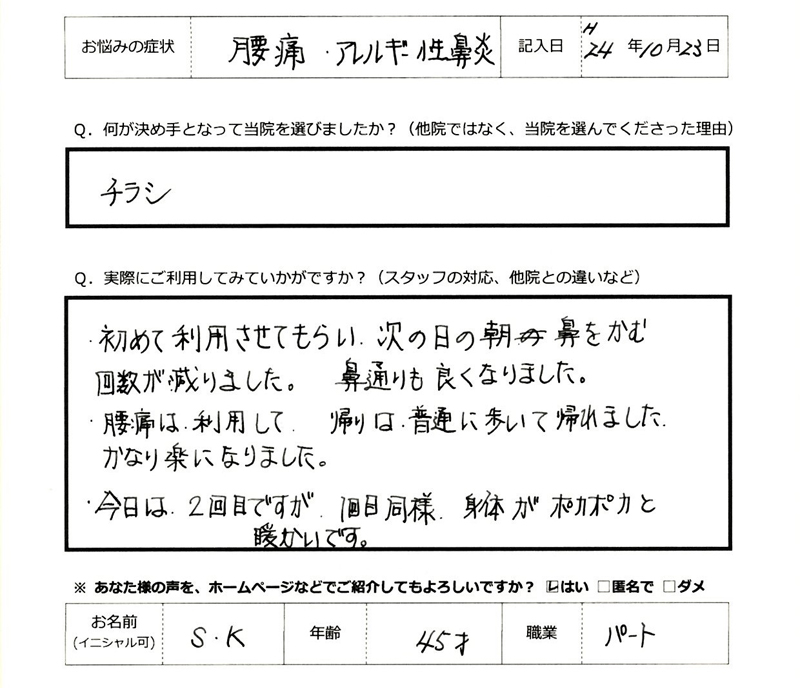 お悩みの症状 腰痛・アレルギー性鼻炎 記入日 H24年10月23日
Q. 何が決め手となって当院を選びましたか？（他院ではなく、当院を選んでくださった理由）
チラシ
Q. 実際にご利用してみていかがですか？（スタッフの対応、他院との違いなど）
・初めて利用させてもらい、次の日の朝 鼻をかむ
回数が減りました。 鼻通りも良くなりました。
・腰痛は、利用して、 帰りは、普通に歩いて帰れました。
かなり楽になりました。
・今日は、2回目ですが、1回目同様、身体がポカポカと
暖かいです。
※ あなた様の声を、ホームページなどでご紹介してもよろしいですか？ ☑はい □匿名で □ダメ
お名前 S・K 年齢 45才 職業 パート
(イニシャル可)